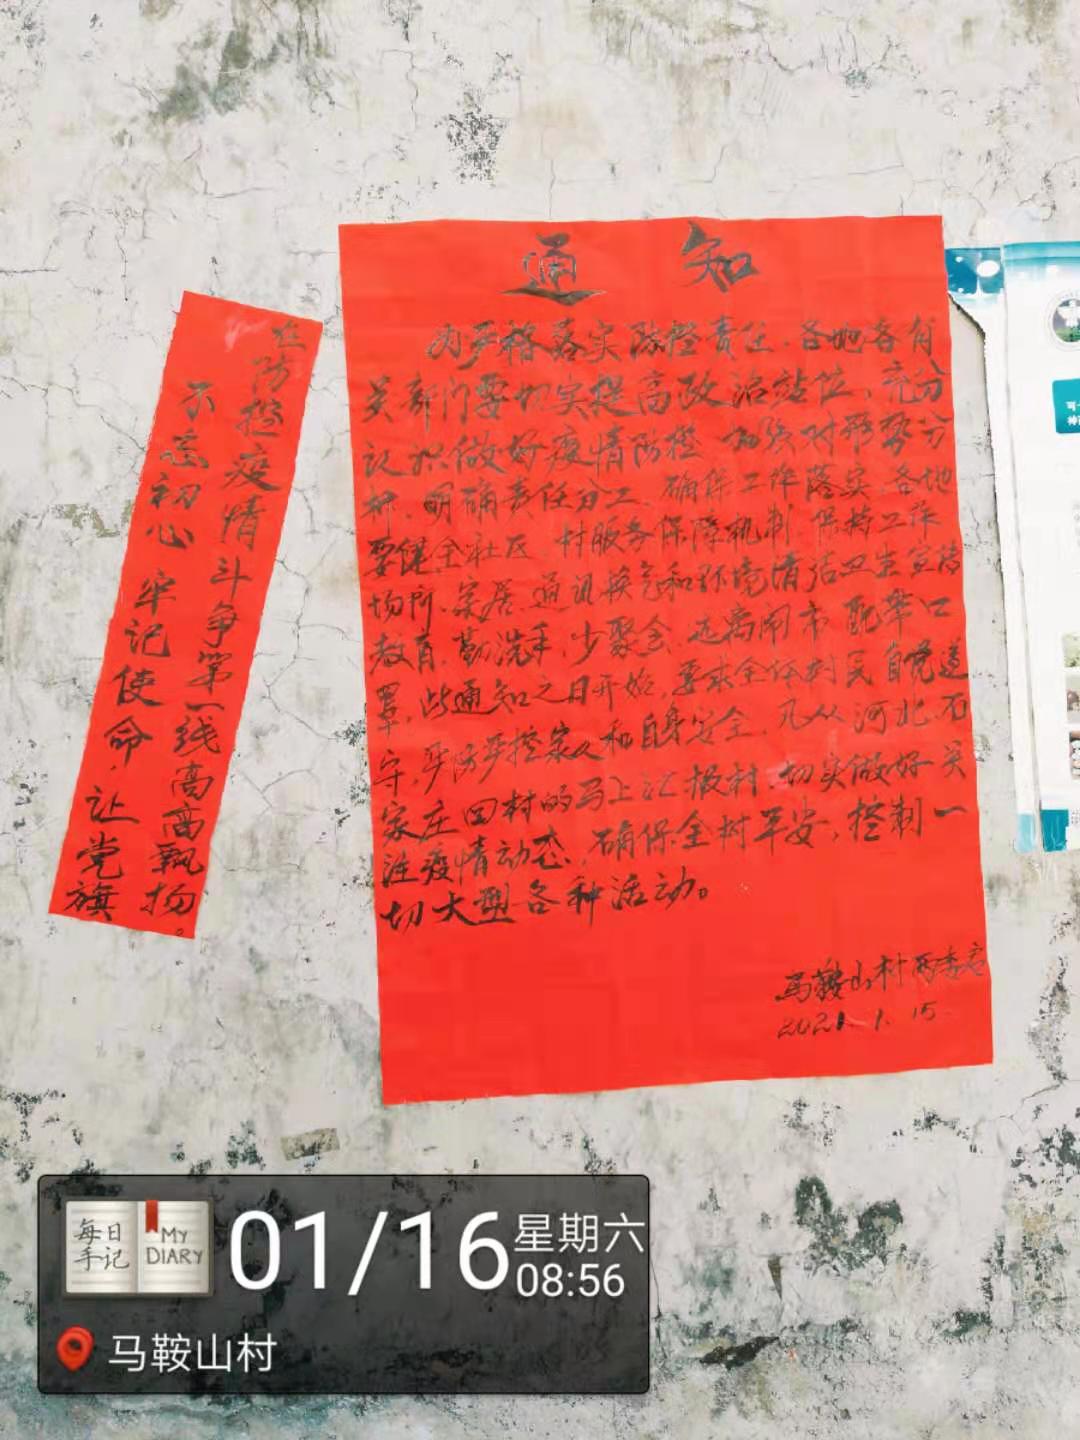 通 知
为严格落实防控责任、各地各有
关部门要切实提高政治站位，充分
认识做好疫情防控 加强对形势分
析、明确责任分工、确保工作落实、各地
要健全社区、村服务保障机制、保持工作
场所、家居、通讯换气和环境清洁卫生宣传
教育、勤洗手、少聚会、远离闹市 配带口
罩，此通知之日开始，要求全体村民自觉遵
守，严防严控家人和自身安全，凡从河北石
家庄回村的马上汇报村，切实做好关
注疫情动态，确保全村平安，控制一
切大型各种活动。
马鞍山村两委宣
2021.1.15
不忘初心 牢记使命，让党旗
在防控疫情斗争第一线高高飘扬。
每日
手记
MY
DIARY
01/16
星期六
08:56
马鞍山村